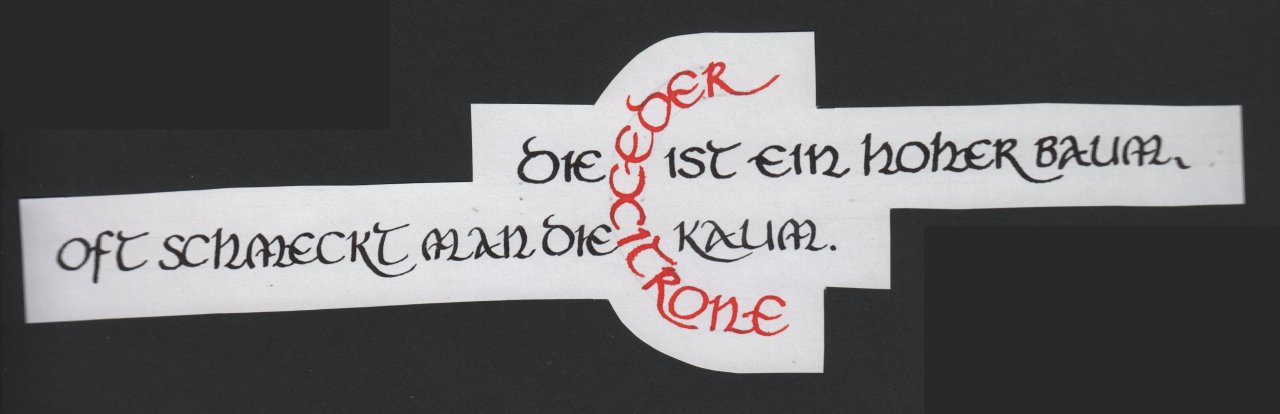 DIE CEDER IST EIN HOHER BAUM,
OFT SCHMECKT MAN DIE CITRONE KAUM.